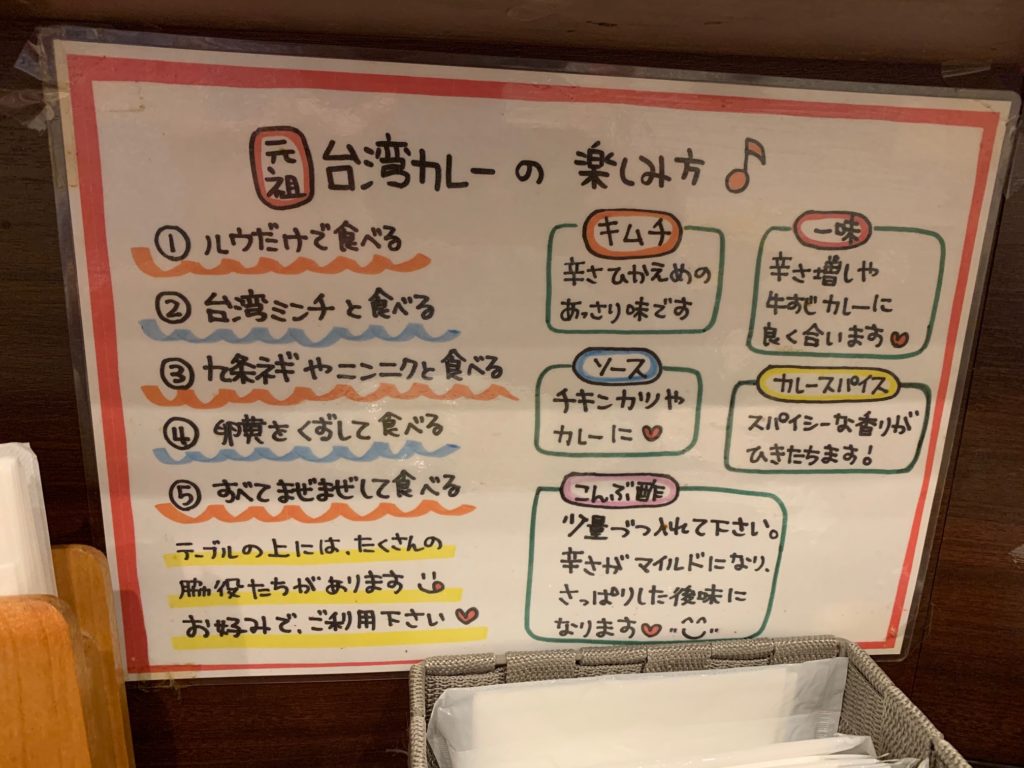 元祖 台湾カレーの 楽しみ方
① ルウだけで食べる
② 台湾ミンチと食べる
③ 九条ネギやニンニクと食べる
④ 卵黄をくずして食べる
⑤ すべてまぜまぜして食べる
テーブルの上には、たくさんの
脇役たちがあります
お好みで、ご利用下さい
キムチ
辛さひかえめの
あっさり味です
一味
辛さ増しや
牛すじカレーに
良く合います
ソース
チキンカツや
カレーに
カレースパイス
スパイシーな香りが
ひきたちます!
こんぶ酢
少量づつ入れて下さい。
辛さがマイルドになり、
さっぱりした後味に
なります